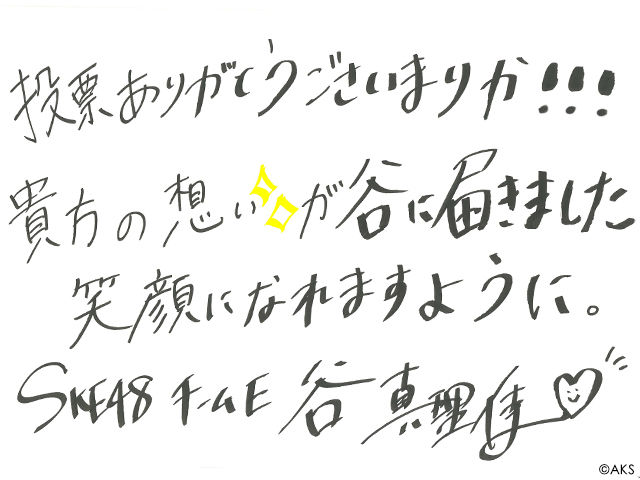 投票ありがとうございまりか!!!
貴方の想いが谷に届きました
笑顔になれますように。
SKE48 チームE 谷 真理佳
©AKS